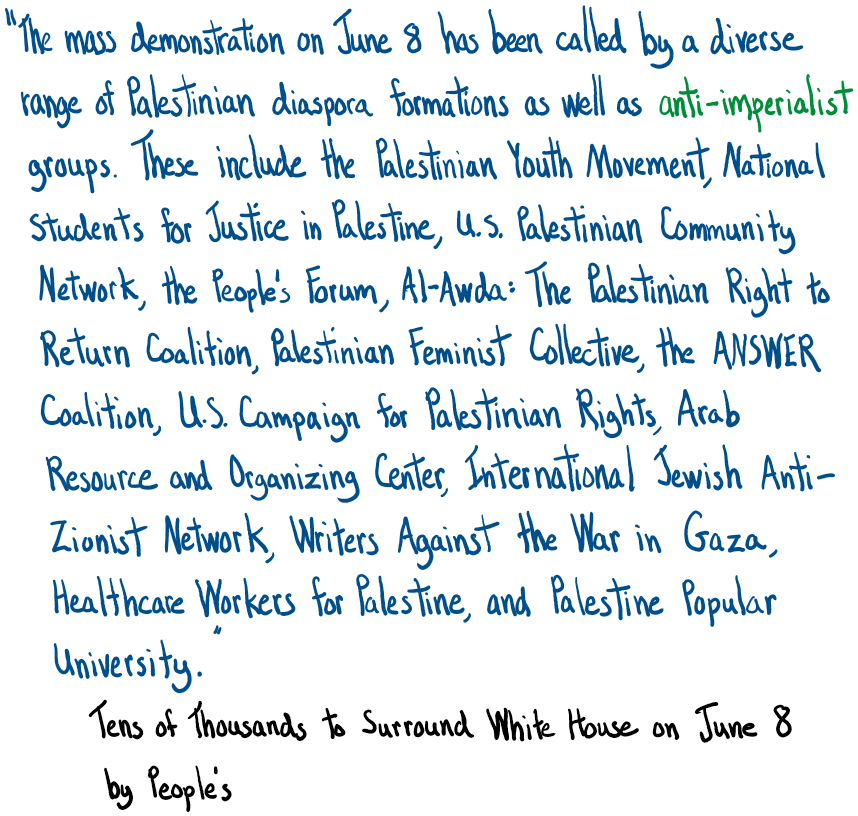 "The mass demonstration on June 8 has been called by a diverse
range of Palestinian diaspora formations as well as anti-imperialist
groups. These include the Palestinian Youth Movement, National
Students for Justice in Palestine, U.S. Palestinian Community
Network, the People's Forum, Al-Awda: The Palestinian Right to
Return Coalition, Palestinian Feminist Collective, the ANSWER
Coalition, U.S. Campaign for Palestinian Rights, Arab
Resource and Organizing Center, International Jewish Anti-
Zionist Network, Writers Against the War in Gaza,
Healthcare Workers for Palestine, and Palestine Popular
University."
Tens of Thousands to Surround White House on June 8
by People's